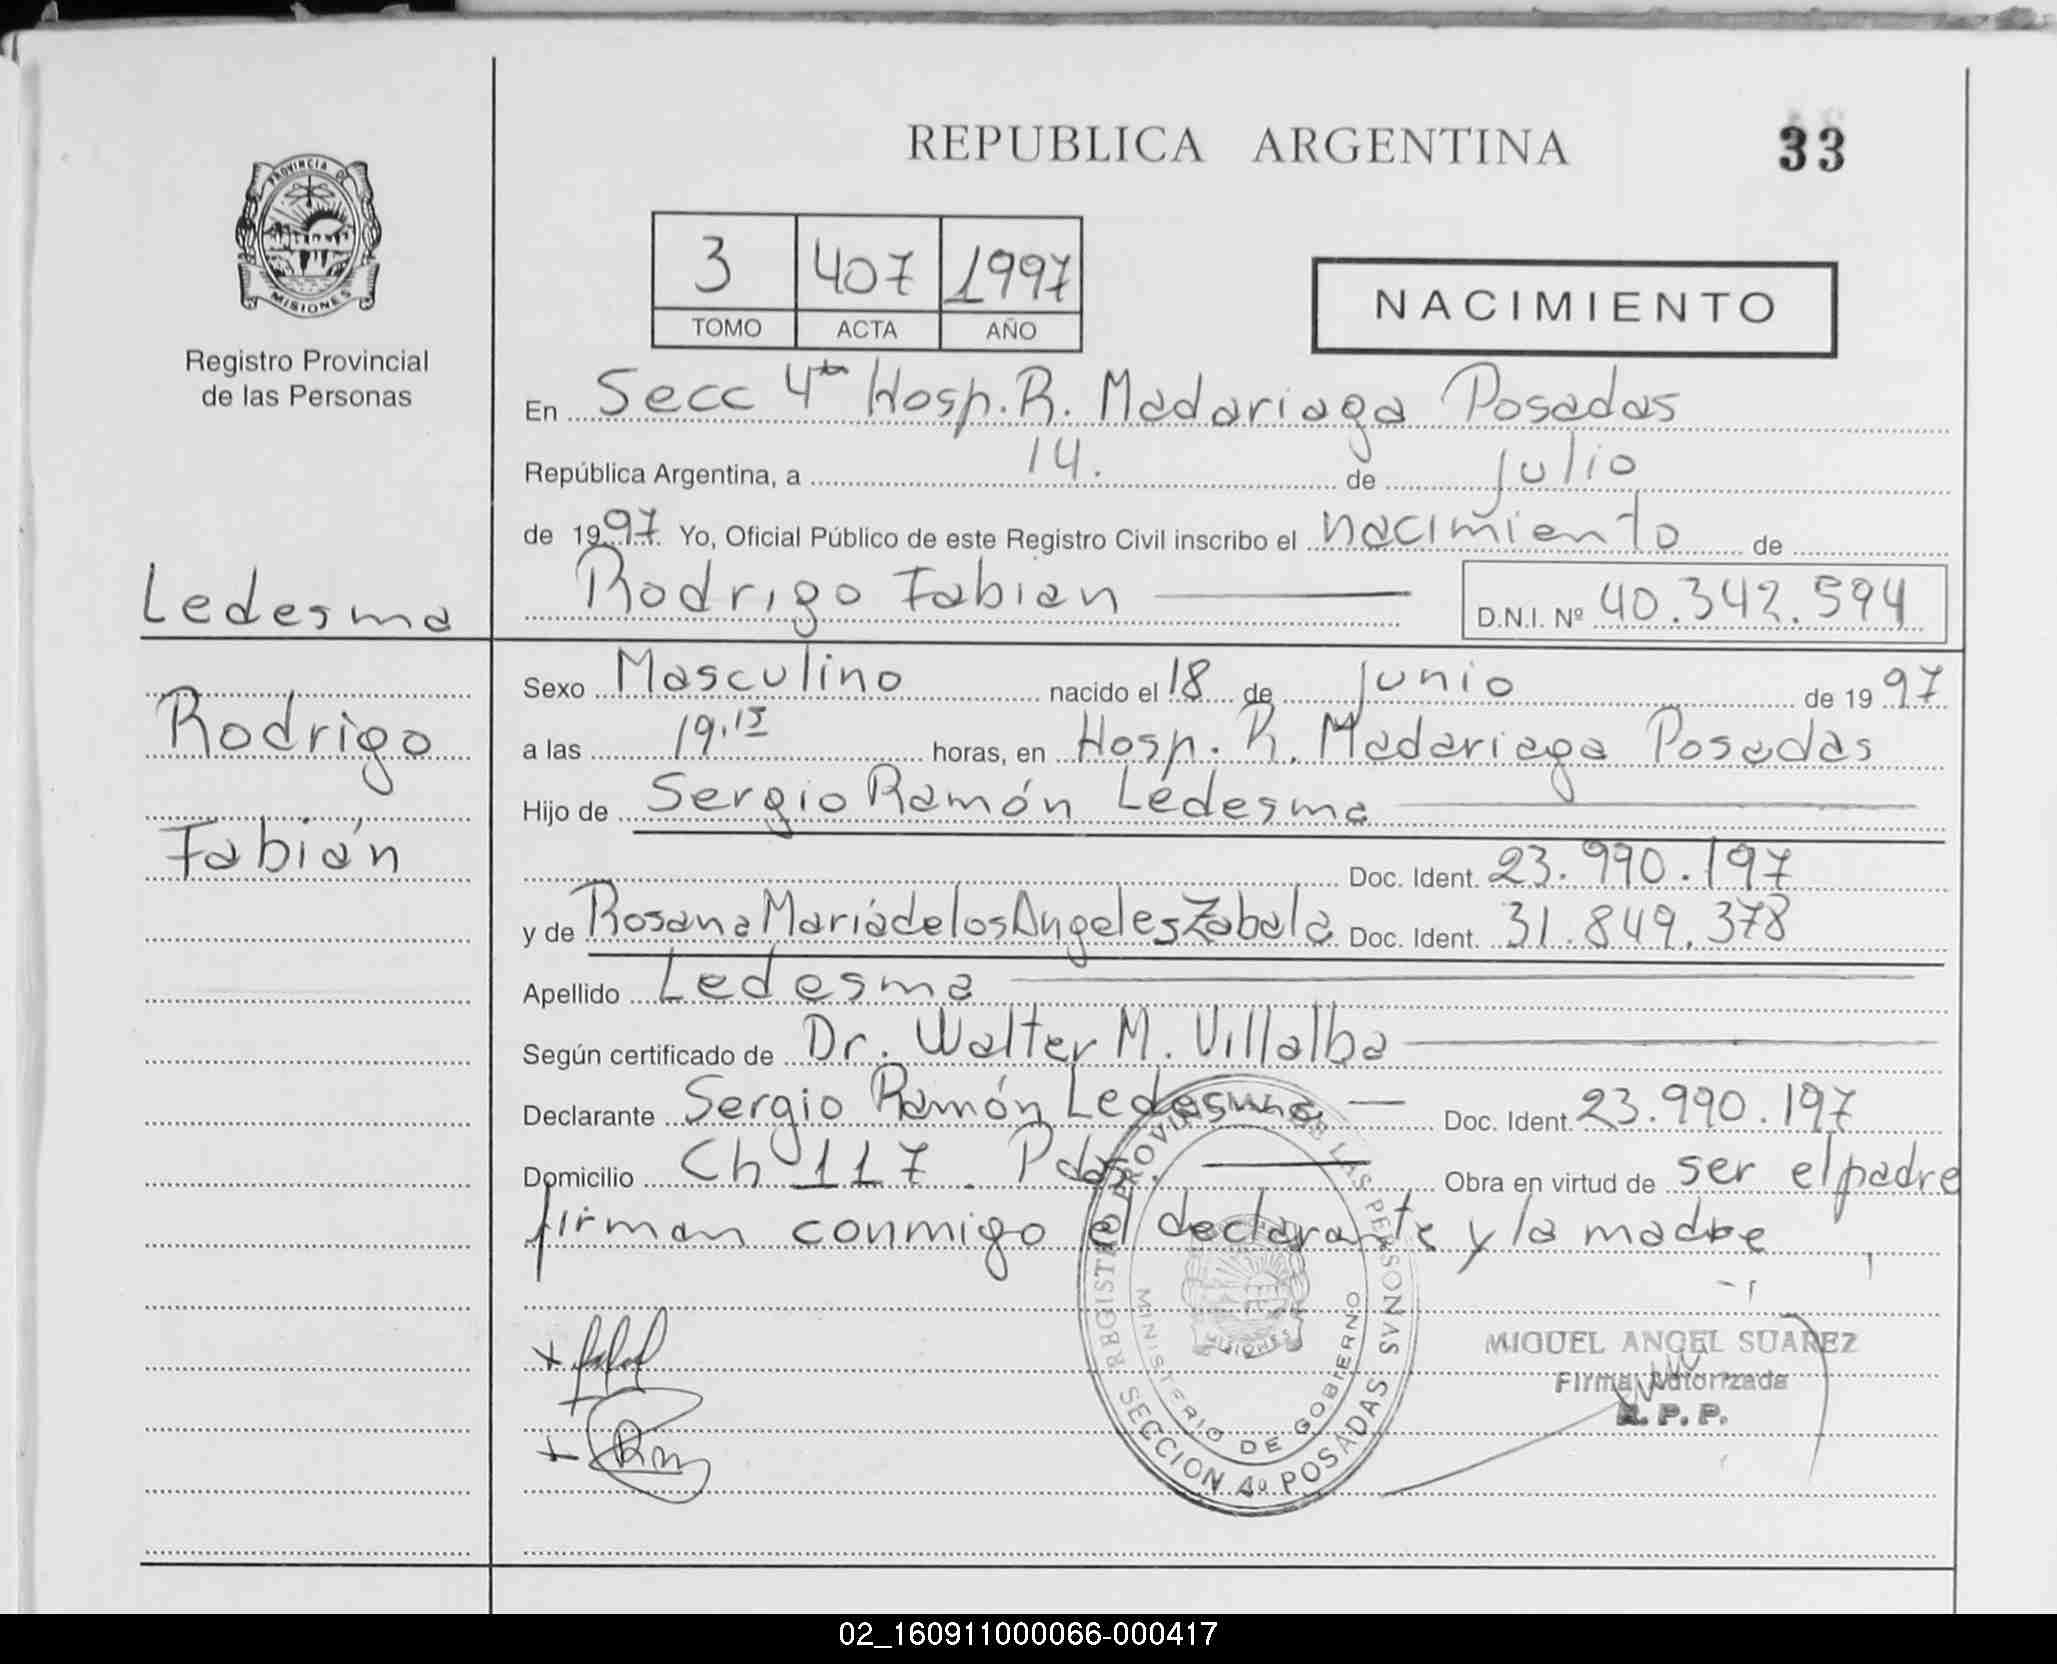 REPUBLICA ARGENTINA
33
PROVINCIA DE
MISIONES
Registro Provincial
de las Personas
3 407 1997
TOMO ACTA AÑO
NACIMIENTO
En Secc 4ta Hosp. R. Madariaga Posadas
República Argentina, a 14. de Julio
de 1997. Yo, Oficial Público de este Registro Civil inscribo el nacimiento de
Rodrigo Fabian D.N.I. Nº 40.342.594
Ledesma
Rodrigo
Fabián
Sexo Masculino nacido el 18 de Junio de 1997
a las 19,15 horas, en Hosp. R. Madariaga Posadas
Hijo de Sergio Ramón Ledesma
Doc. Ident. 23.990.197
y de Rosana María de los Angeles Zabala Doc. Ident. 31.849.378
Apellido Ledesma
Según certificado de Dr. Walter M. Villalba
Declarante Sergio Ramón Ledesma Doc. Ident. 23.990.197
Domicilio Ch 117. Pdas. Obra en virtud de ser el padre
firman conmigo el declarante y la madre
REGISTRO PROVINCIAL DE LAS PERSONAS
MINISTERIO DE GOBIERNO
MISIONES
SECCION 4º POSADAS
MIGUEL ANGEL SUAREZ
Firma Autorizada
R. P. P.
02_160911000066-000417